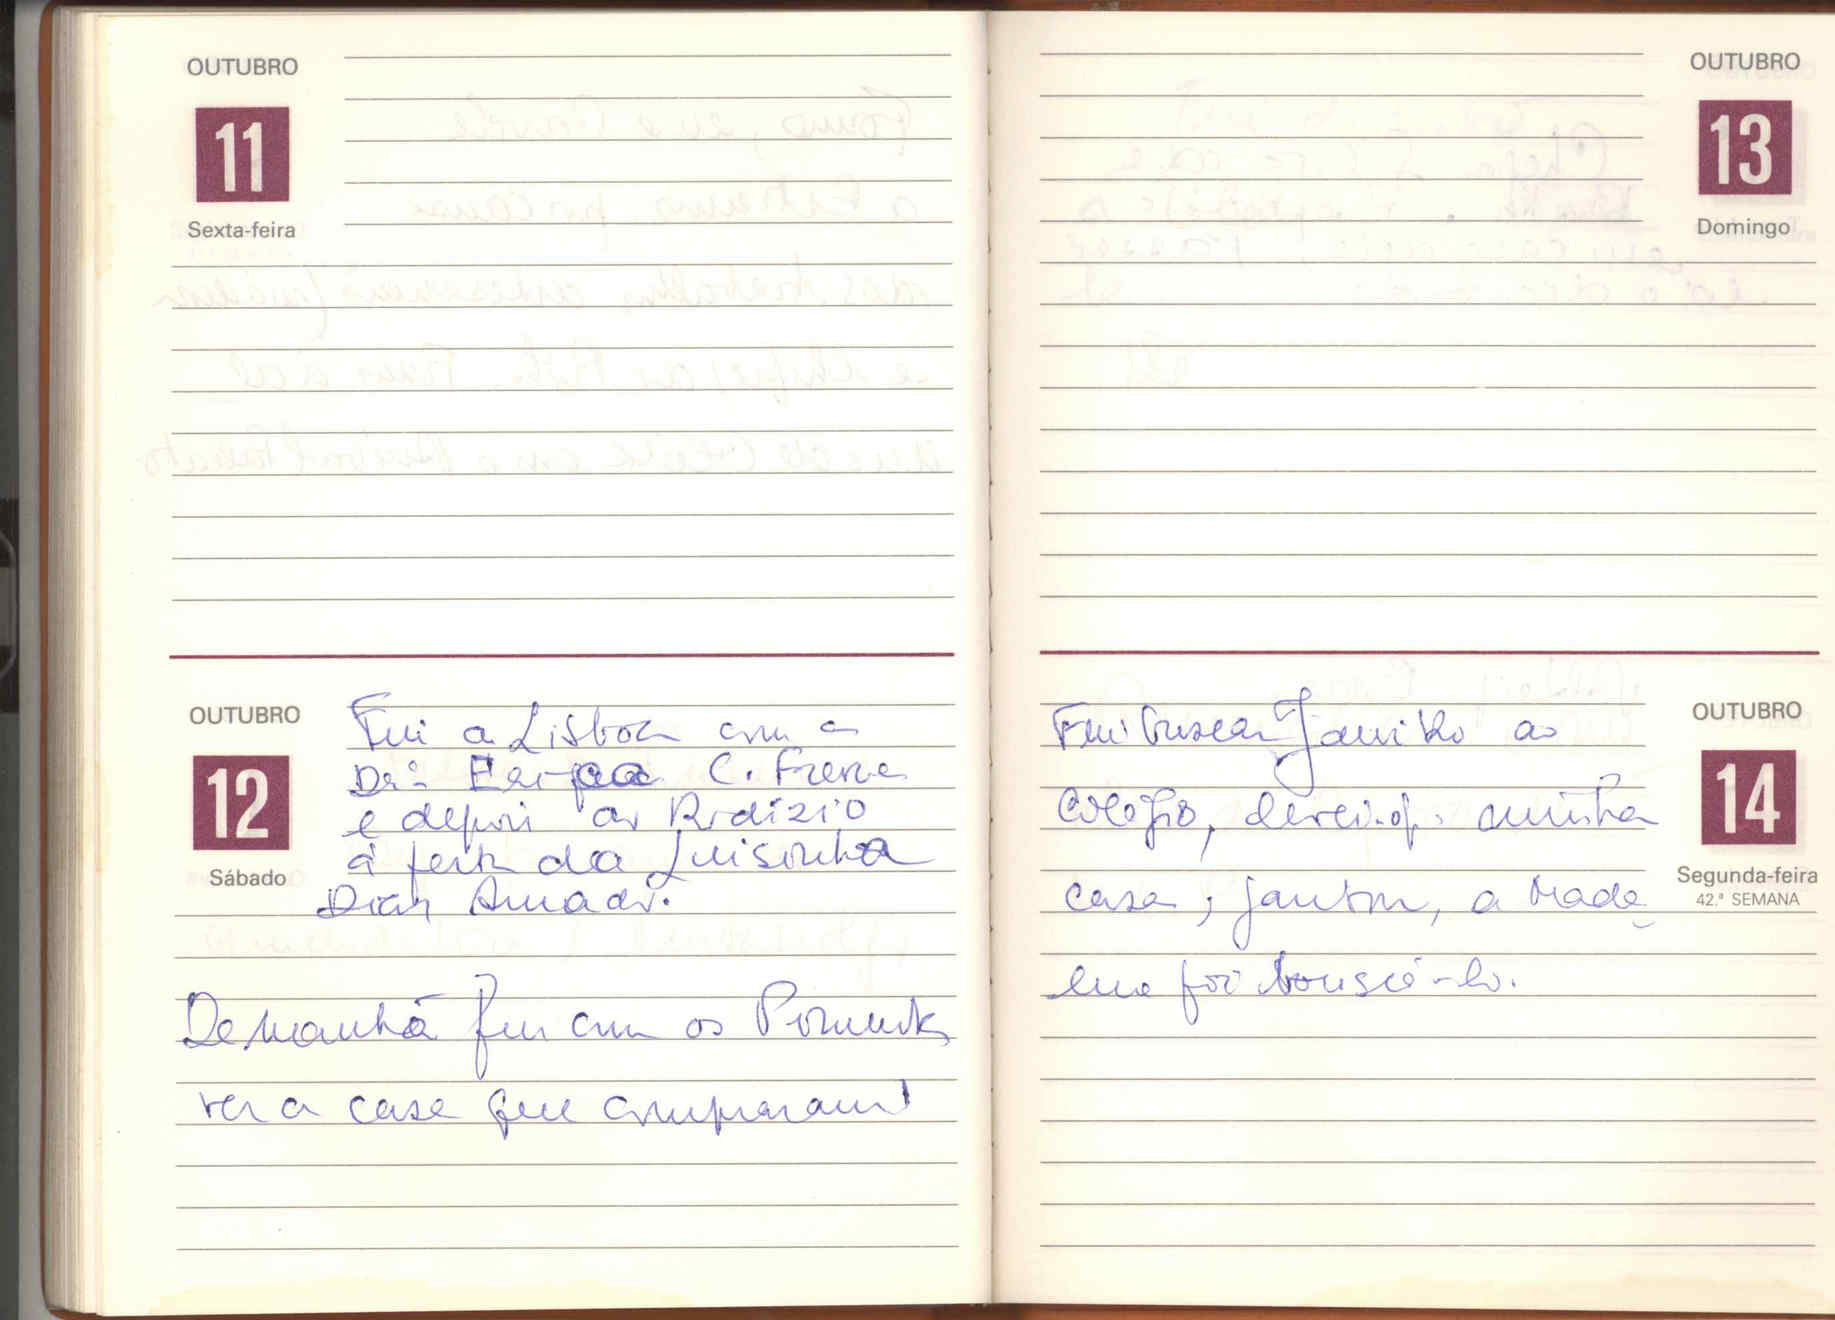 OUTUBRO
11
Sexta-feira
OUTUBRO
12
Sábado
Fui a Lisboa com a
Dr.ª C. Freire
e depois ao Rodízio
à festa da Luisinha
Dias Amado.
De manhã fui com os
ver a casa que compraram
OUTUBRO
13
Domingo
OUTUBRO
14
Segunda-feira
42.ª SEMANA
Fui buscar Janinho ao
Colégio, minha
casa, jantou, a Made
lena foi buscá-lo.